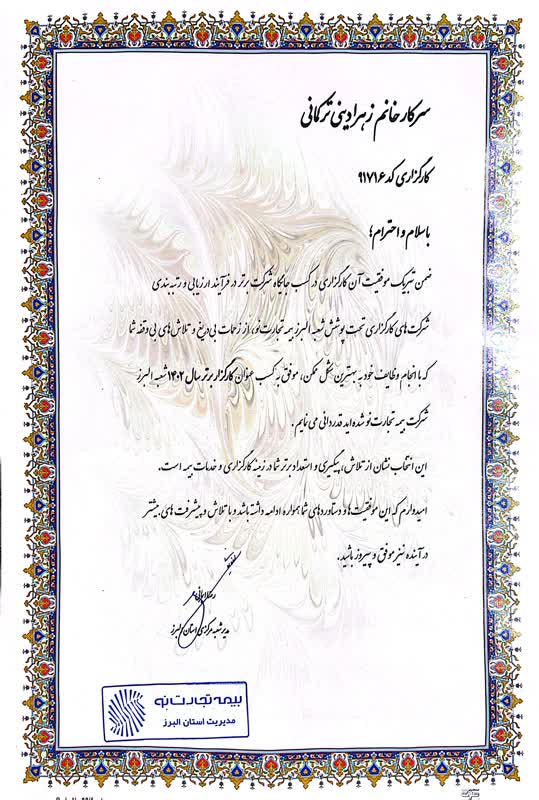 سرکار خانم زهرا دینی ترکمانی
کارگزاری کد ۹۱۷۱۶
با سلام و احترام؛
ضمن تبریک موفقیت آن کارگزاری در کسب جایگاه شرکت برتر در فرآیند ارزیابی و رتبه بندی
شرکت های کارگزاری تحت پوشش شعبه البرز بیمه تجارت نو، از زحمات بی دریغ و تلاش های بی وقفه شما
که با انجام وظایف خود به بهترین شکل ممکن، موفق به کسب عنوان کارگزار برتر سال ۱۴۰۲ شعبه البرز
شرکت بیمه تجارت نو شده اید قدردانی می نمایم.
این انتخاب نشان از تلاش، پیگیری و استعداد برتر شما در زمینه کارگزاری و خدمات بیمه است.
امیدوارم که این موفقیت ها و دستاوردهای شما همواره ادامه داشته باشد و با تلاش و پیشرفت های بیشتر
در آینده نیز موفق و پیروز باشید.
مدیر شعبه مرکزی استان البرز
بیمه تجارت نو
مدیریت استان البرز